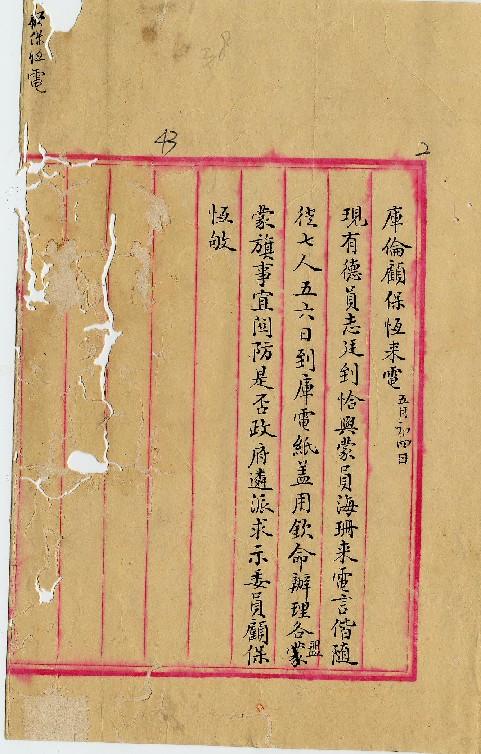 2
43
38
庫倫顧保恆来電 五月初四日
現有德員志廷到恰與蒙員海珊来電言偕隨
從七人五六日到庫電紙盖用欽命辦理各盟蒙
蒙旗事宜関防是否政府遴派求示委員顧保
恆敏
保恆電